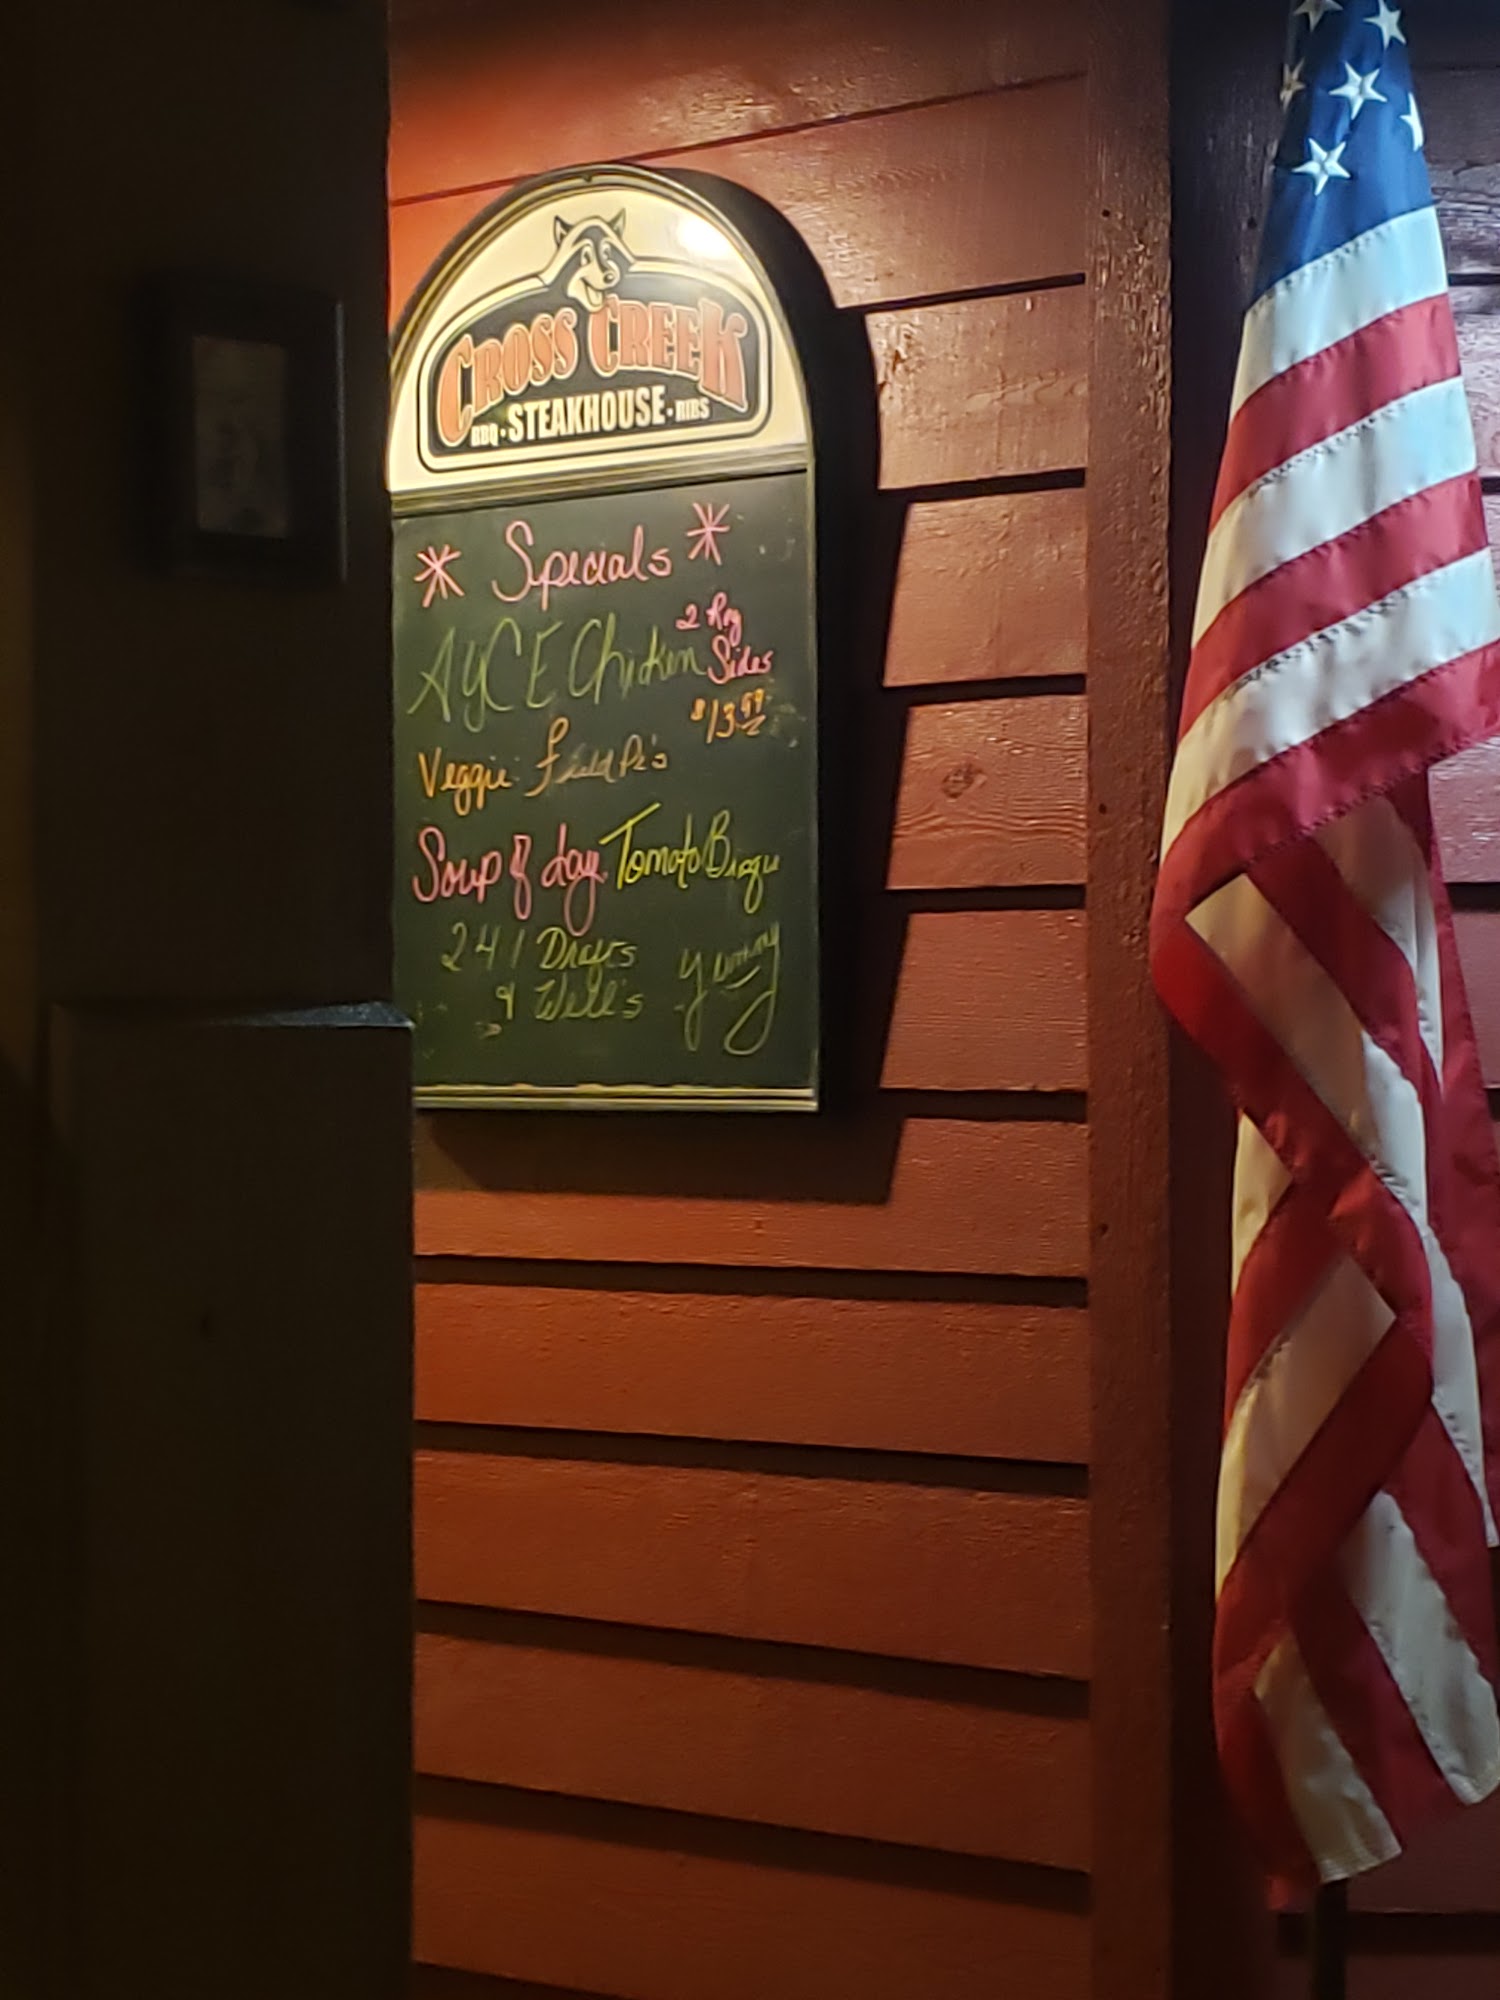 CROSS CREEK
BBQ · STEAKHOUSE · RIBS
* Specials *
AYCE Chicken 2 Reg
Sides
$13.99
Veggie: Field Pe's
Soup of day Tomato Bisque
241 Drafts Yummy
& Well's